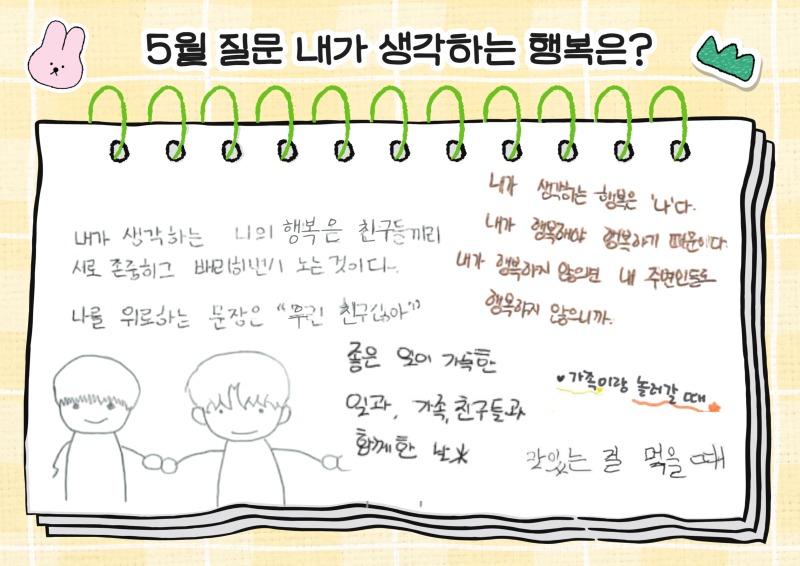 5월 질문 내가 생각하는 행복은?
내가 생각하는 나의 행복은 친구들끼리
서로 존중하고 배려하면서 노는 것이다.
나를 위로하는 문장은 “우린 친구잖아”
내가 생각하는 행복은 '나'다.
내가 행복해야 행복하기 때문이다.
내가 행복하지 않으면 내 주변인들도
행복하지 않으니까.
좋은 일이 가득한
일과, 가족, 친구들과
함께한 날
♥가족이랑 놀러갈 때
맛있는 걸 먹을 때